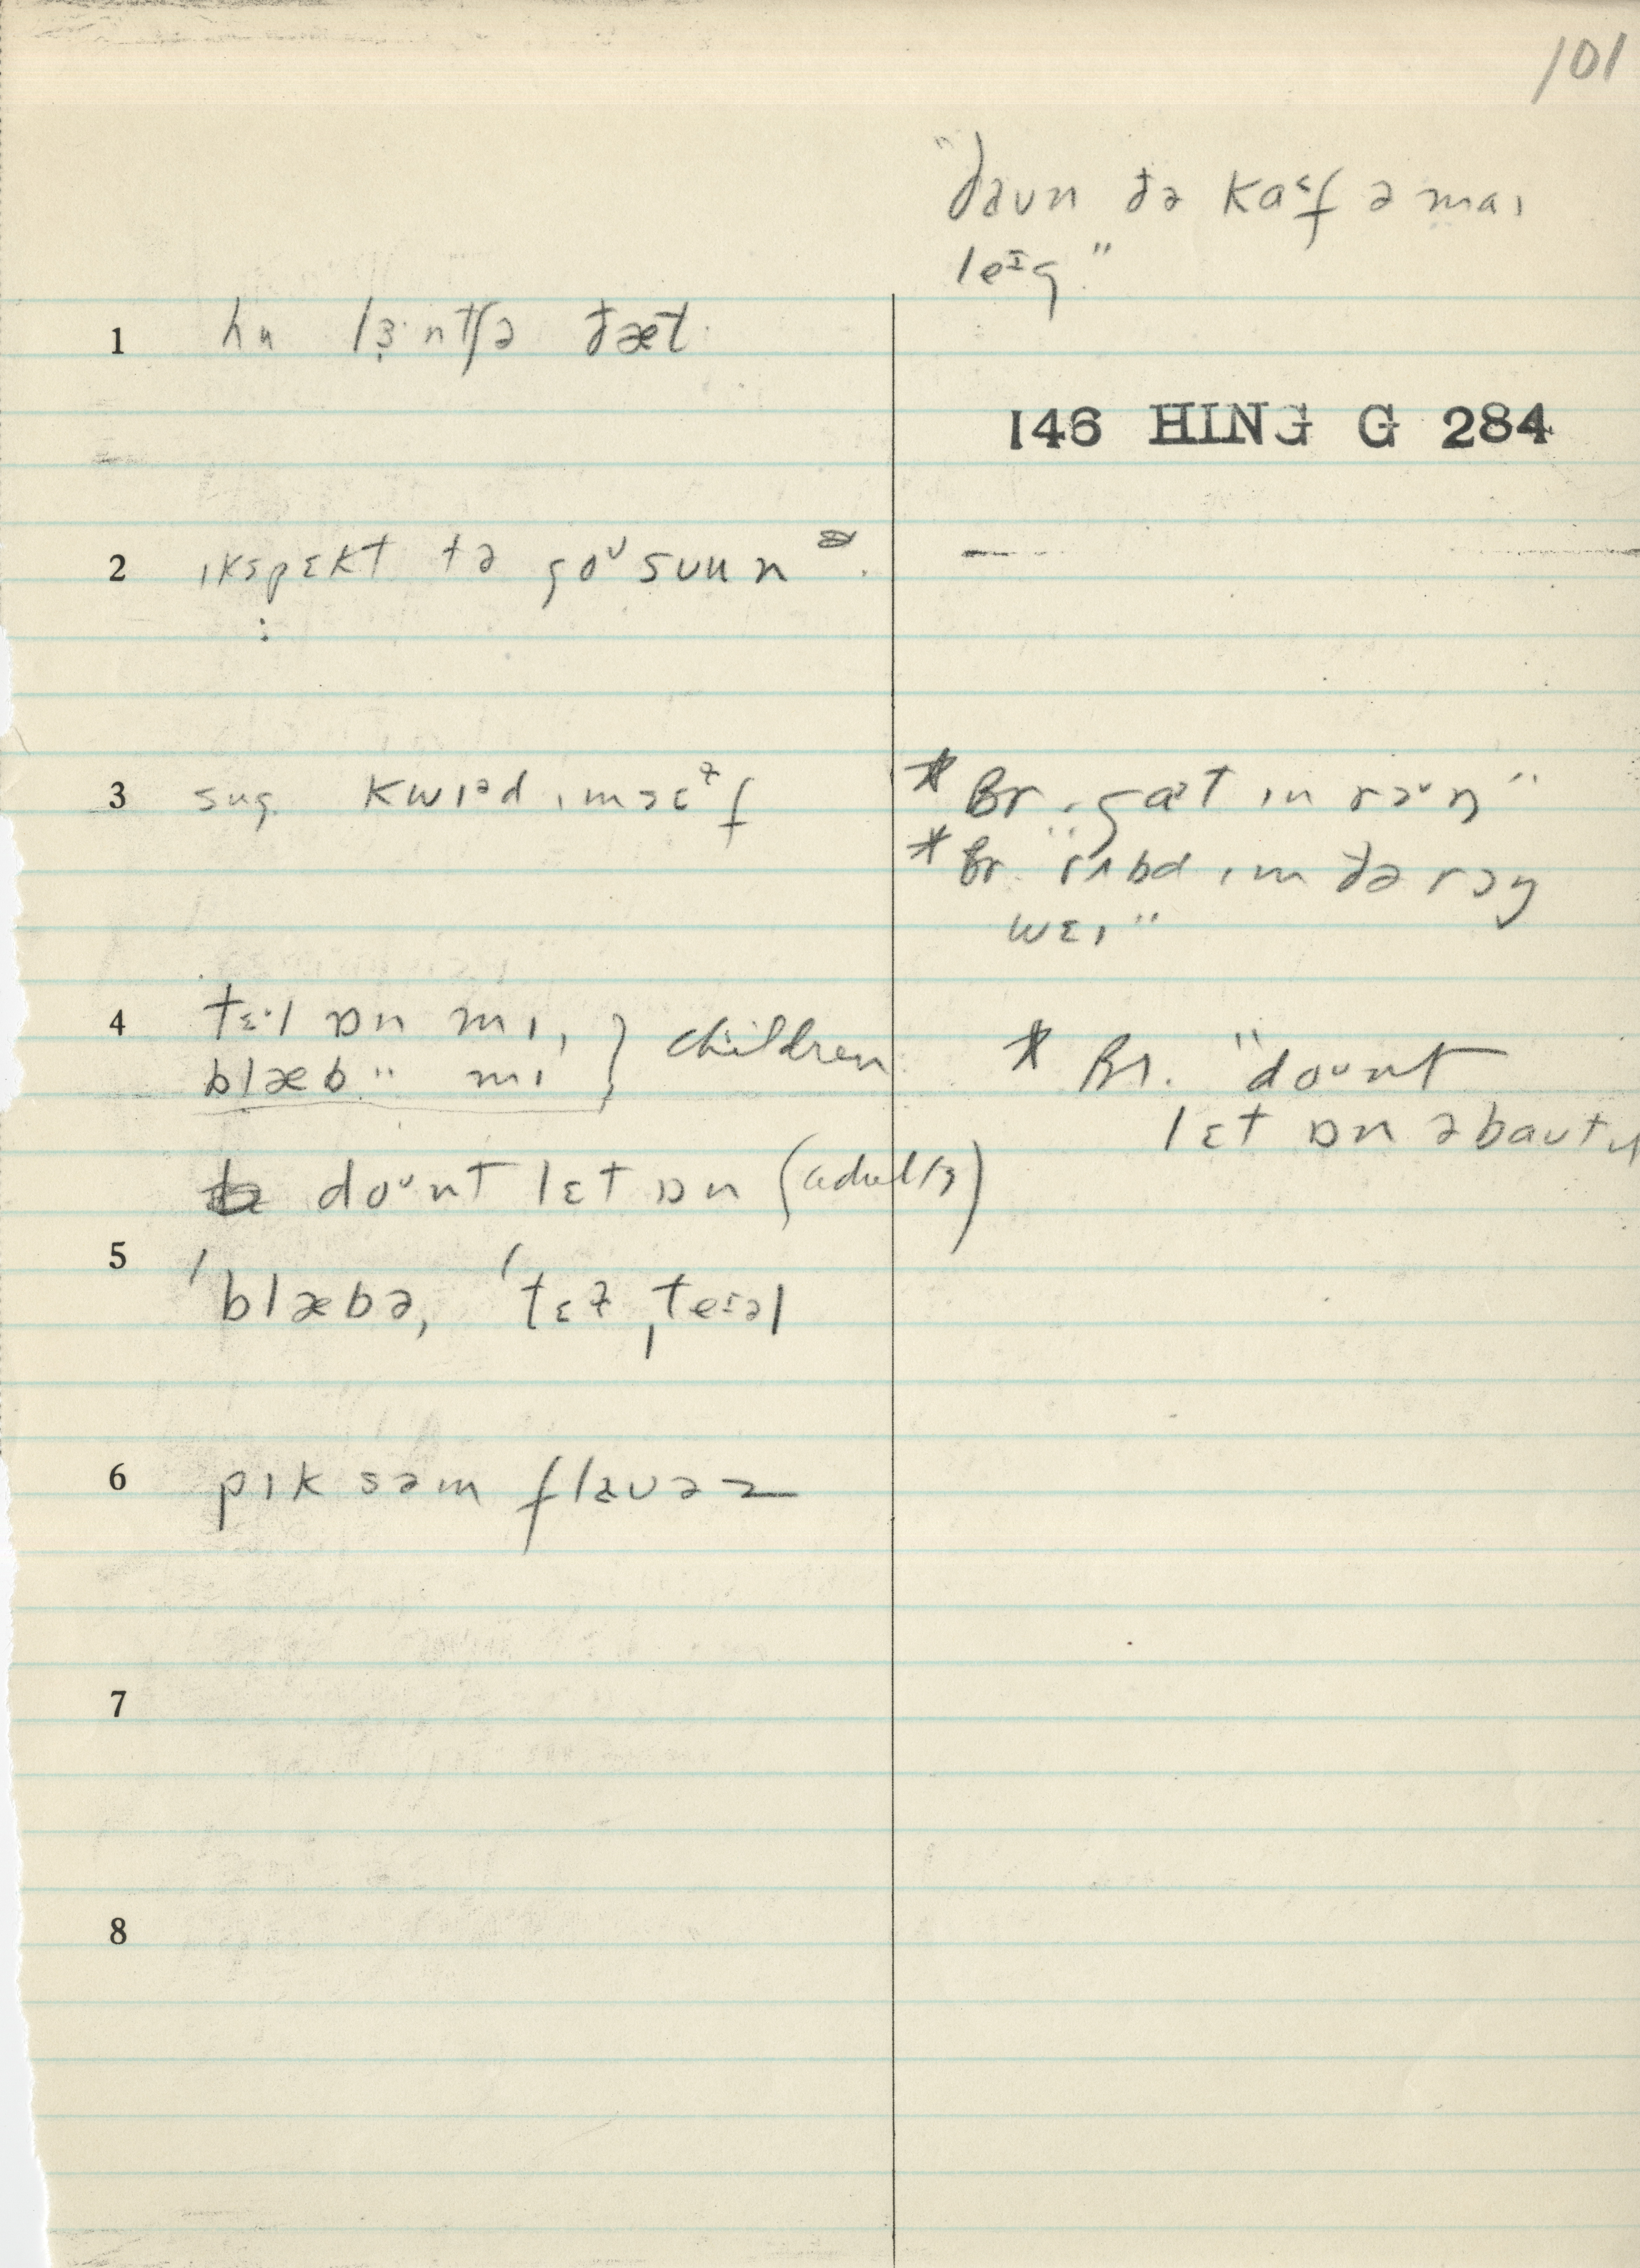 101
"ðaun ðə kaᵋf ə maɪ
leᶦg"
1 hu lɜ·ntʃə ðæt
146 HING G 284
2 ɪkspɛkt tə goᶷ suun
3 sug kwɪᵊd ɪmsɛɫf
* Br. "gat ɪn rɔᶷŋ"
* Br "rʌbd ɪm ðə rɔŋ
wɛɪ"
4 tɛ·l ɒn mɪ, } children
blæb " mɪ
* Br. "doᶷnt
lɛt ɒn əbaut ɪt
doᶷnt lɛt ɒn (adults)
5 ˈblæbə, ˈtɛɫˌteɪəl
6 pɪk səm flauəz
7
8